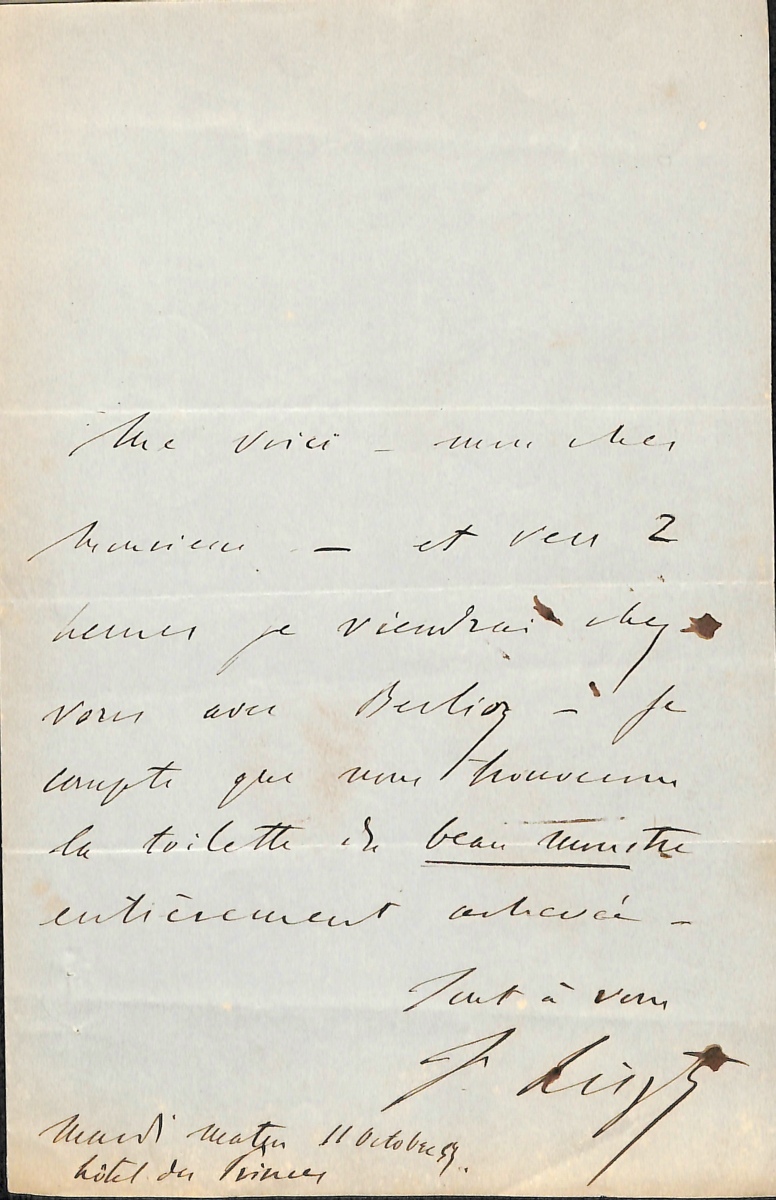 Me voici – mon cher
Monsieur – et vers 2
heures je viendrai chez
vous avec Berlioz – Je
compte que nous trouverons
la toilette du beau monstre
entièrement achevée –
Tout à vous
F Liszt
Mardi matin 11 Octobre 53.
hôtel des Princes